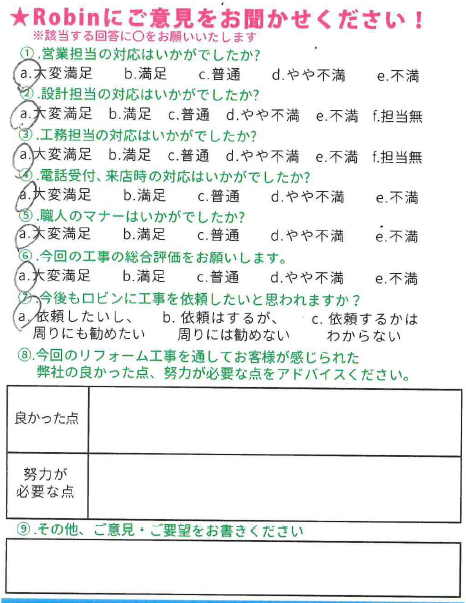 ★Robinにご意見をお聞かせください！
※該当する回答に〇をお願いいたします
①.営業担当の対応はいかがでしたか?
a.大変満足 b.満足 c.普通 d.やや不満 e.不満
②.設計担当の対応はいかがでしたか?
a.大変満足 b.満足 c.普通 d.やや不満 e.不満 f.担当無
③.工務担当の対応はいかがでしたか?
a.大変満足 b.満足 c.普通 d.やや不満 e.不満 f.担当無
④.電話受付、来店時の対応はいかがでしたか?
a.大変満足 b.満足 c.普通 d.やや不満 e.不満
⑤.職人のマナーはいかがでしたか?
a.大変満足 b.満足 c.普通 d.やや不満 e.不満
⑥.今回の工事の総合評価をお願いします。
a.大変満足 b.満足 c.普通 d.やや不満 e.不満
⑦.今後もロビンに工事を依頼したいと思われますか？
a. 依頼したいし、 b. 依頼はするが、 c. 依頼するかは
周りにも勧めたい 周りには勧めない わからない
⑧.今回のリフォーム工事を通してお客様が感じられた
弊社の良かった点、努力が必要な点をアドバイスください。
良かった点
努力が
必要な点
⑨.その他、ご意見・ご要望をお書きください